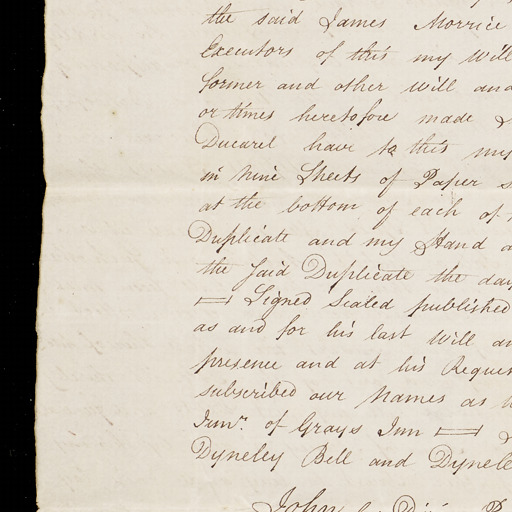 the said James Morrice
Executors of this my Will
former and other Will and
or times heretofore made &
Ducarel have to this my
in Nine Sheets of Paper
at the bottom of each of
Duplicate and my Hand
the said Duplicate the day
Signed Sealed published
as and for his last Will
presence and at his Reques
subscribed our Names as
Junr. of Grays Inn
Dyneley Bell and Dynele
John